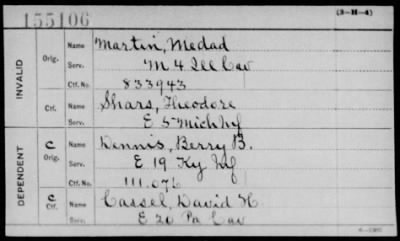 155106
(3-H-4)
INVALID
Orig.
Name Martin, Medad
Serv. M 4 Ill Cav
Ctf. No. 833943
Ctf.
Name Shars, Theodore
Serv. E 5 Mich Inf
DEPENDENT
C Orig.
Name Dennis, Berry B.
Serv. E 19 Ky Inf
Ctf. No. 111.076
C Ctf.
Name Cassel, David H
Serv. E 20 Pa Cav